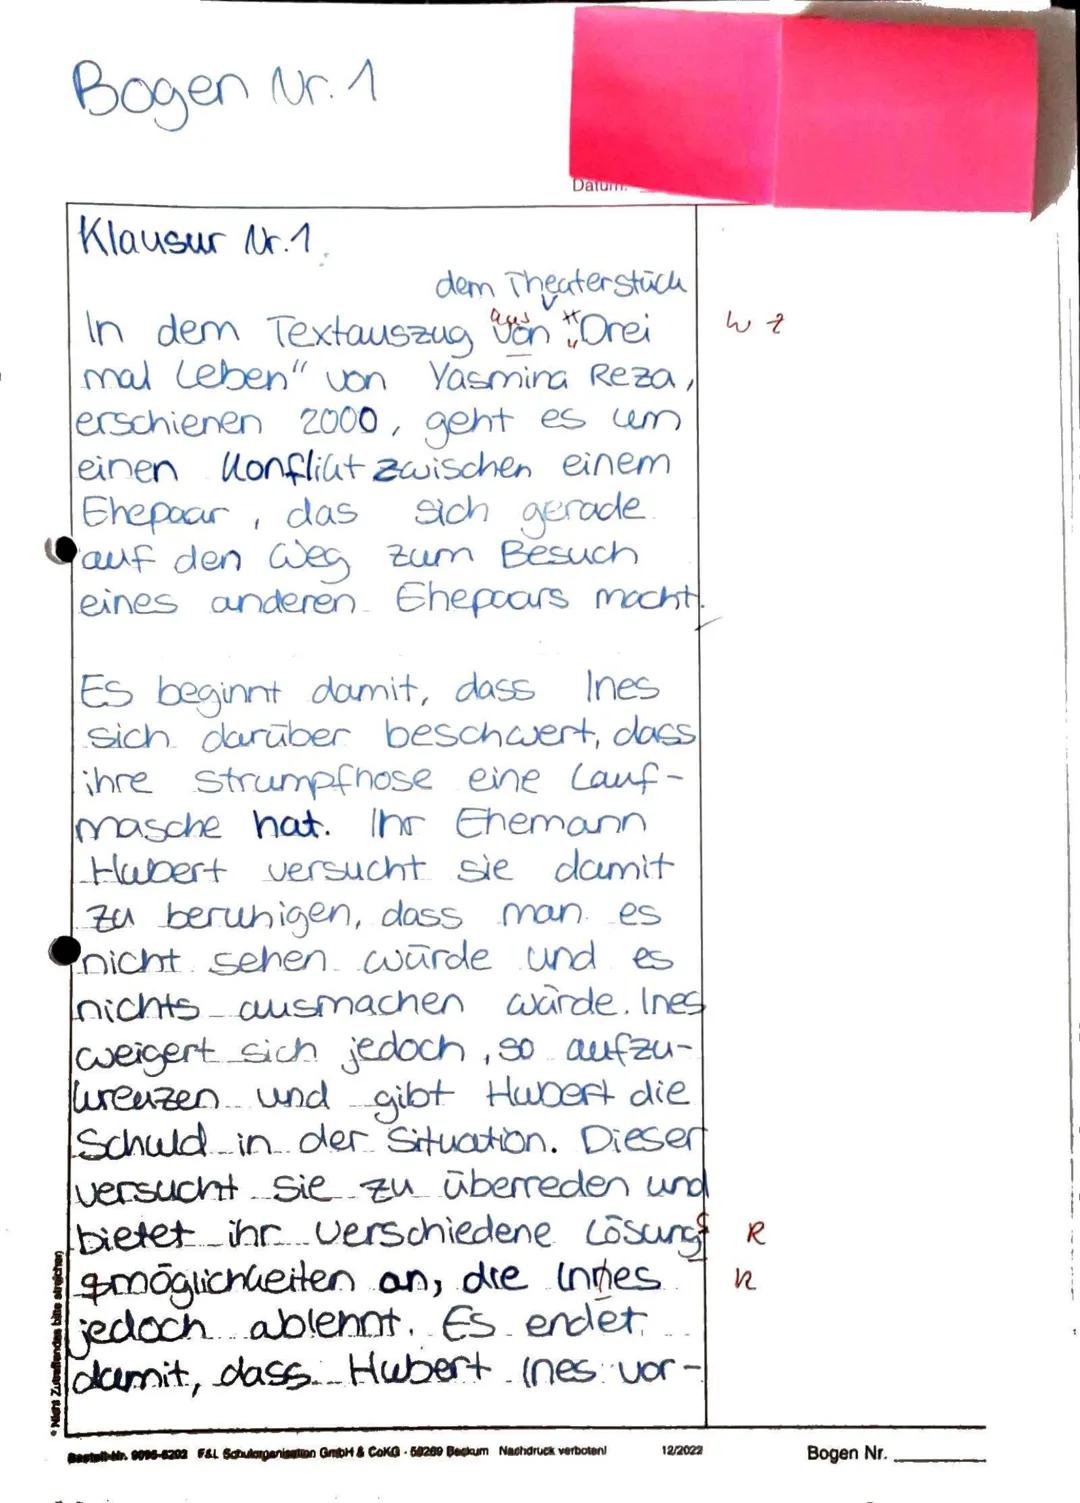 Bogen Nr. 1
Datum:
Klausur Nr. 1
dem Theaterstück
In dem Textauszug von aus "Drei
W Z
mal Leben" von Yasmina Reza,
erschienen 2000, geht es um
einen Konflikt zwischen einem
Ehepaar, das sich gerade
auf den Weg zum Besuch
eines anderen Ehepaars macht.
Es beginnt damit, dass Ines
sich darüber beschwert, dass
ihre Strumpfhose eine Lauf-
masche hat. Ihr Ehemann
Hubert versucht sie damit
zu beruhigen, dass man es
nicht sehen würde und es
nichts ausmachen würde. Ines
weigert sich jedoch, so aufzu-
kreuzen und gibt Hubert die
Schuld in der Situation. Dieser
versucht sie zu überreden und
bietet ihr verschiedene Lösungs
R
möglichkeiten an, die Ines
R
jedoch ablehnt. Es endet
damit, dass Hubert Ines vor-
* Nicht Zutreffendes bitte streichen
Bestell-Nr. 9096-6202 F&L Schulorganisation GmbH & CoKG · 59269 Beckum Nachdruck verboten!
12/2022
Bogen Nr.